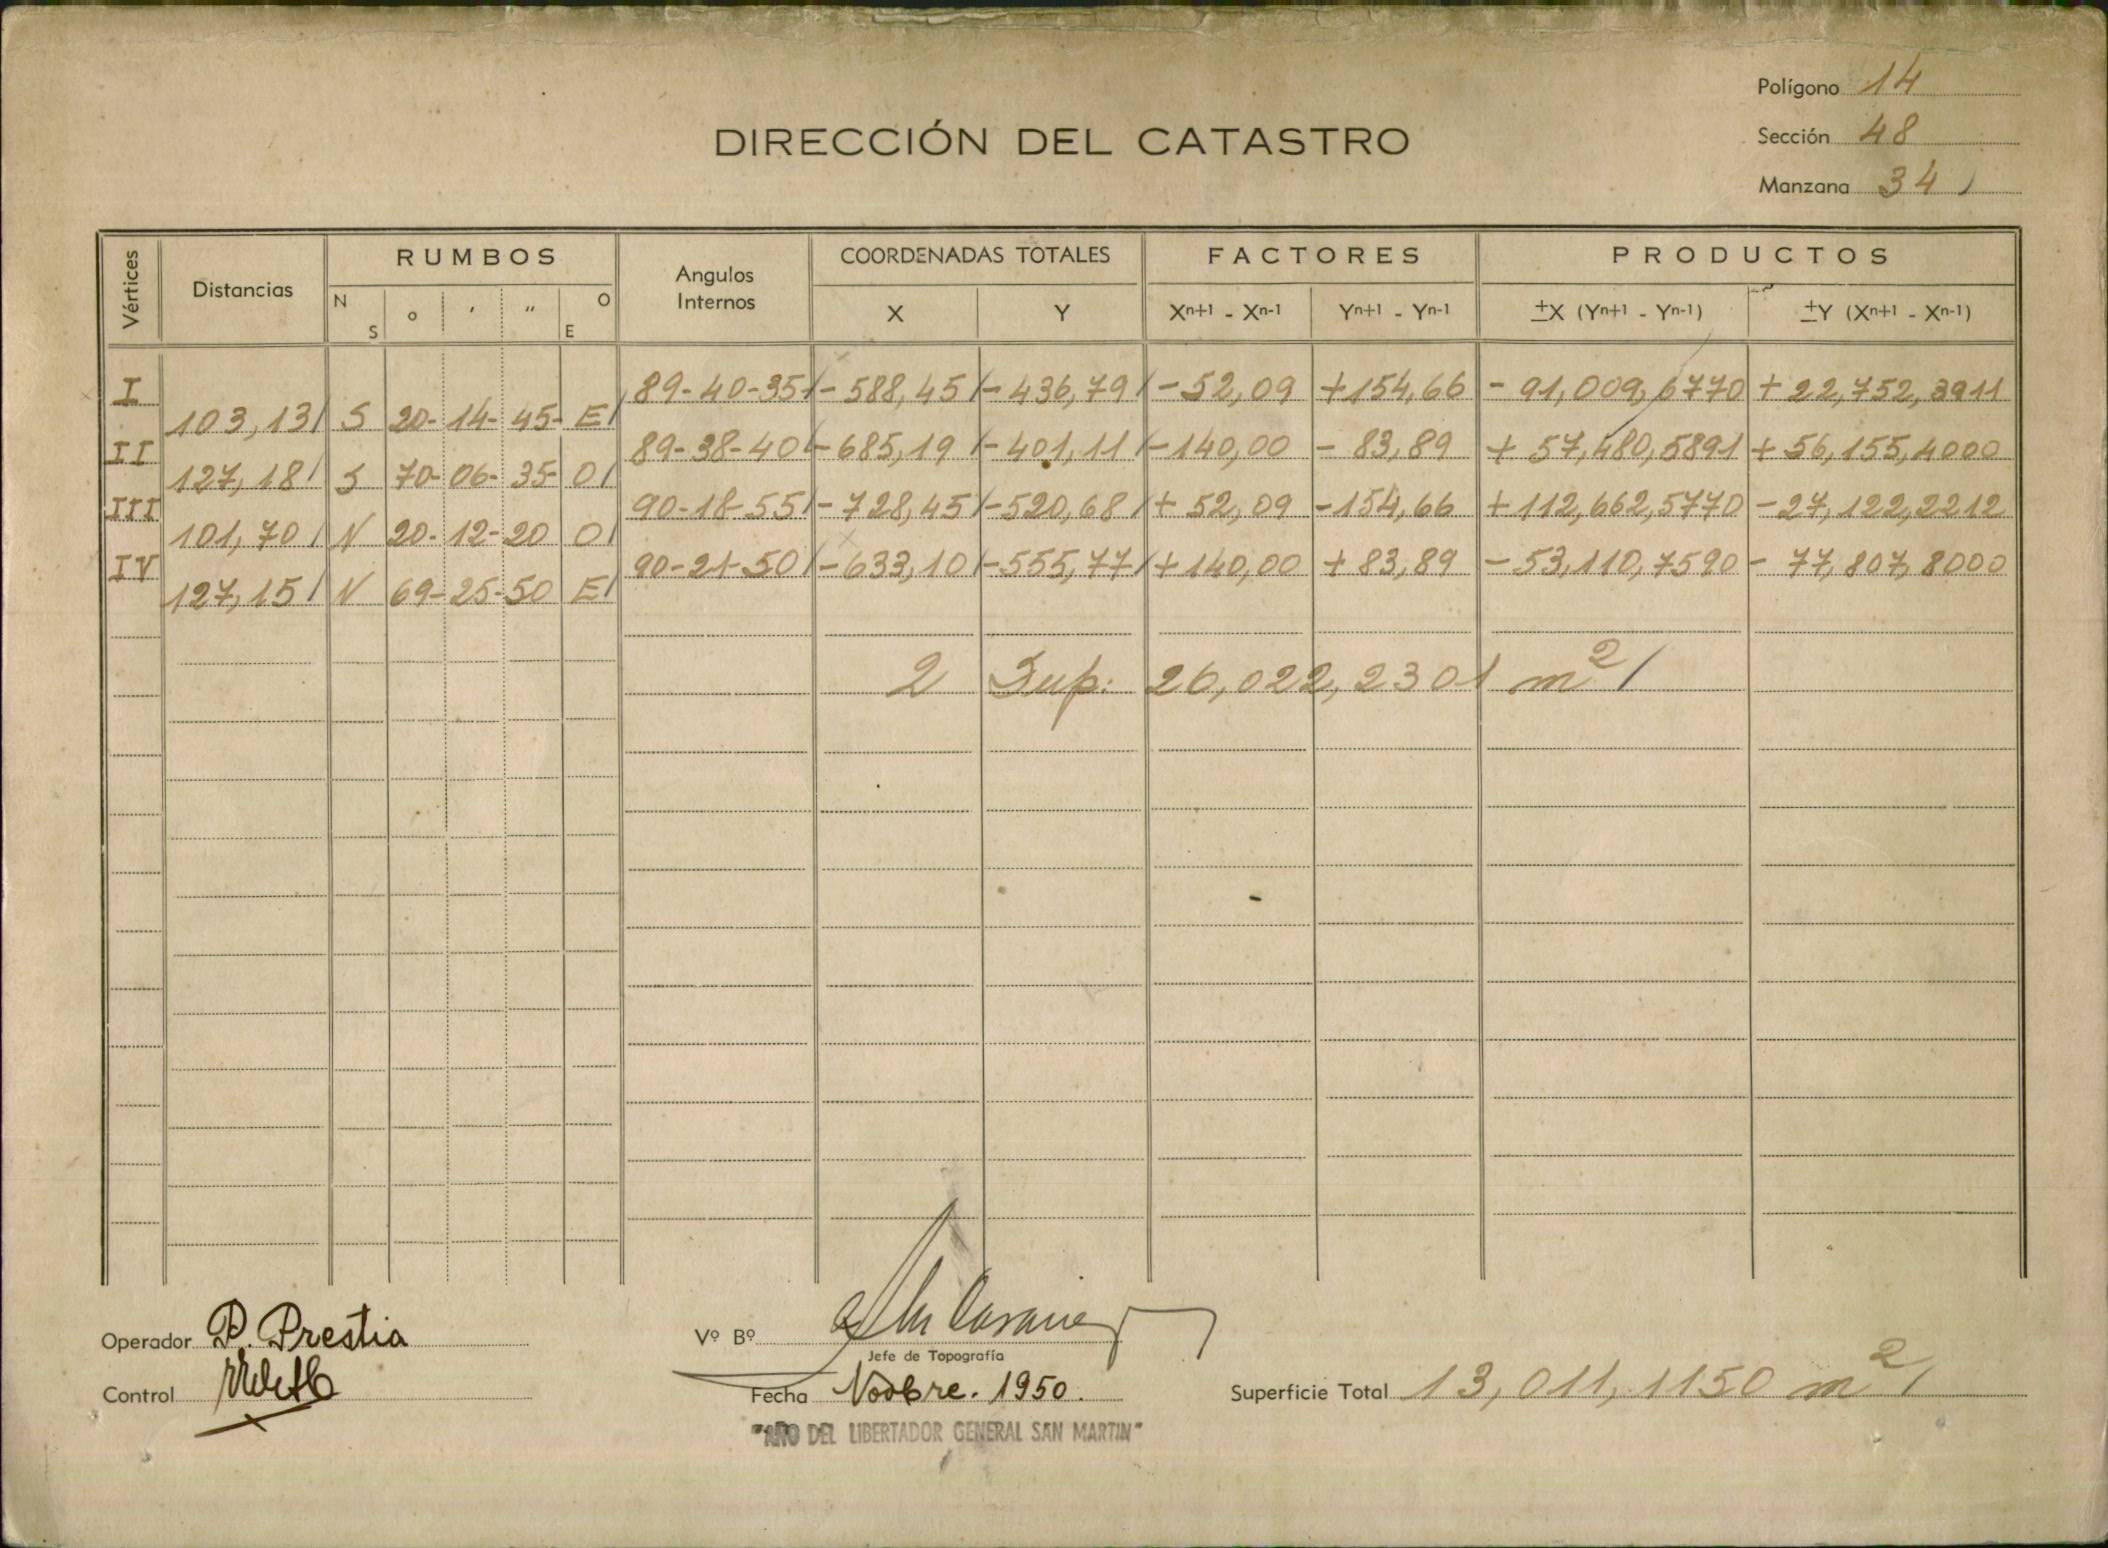 Polígono 14
DIRECCIÓN DEL CATASTRO
Sección 48
Manzana 34
Vértices Distancias RUMBOS Angulos Internos COORDENADAS TOTALES FACTORES PRODUCTOS
N S o ' " O E X Y Xn+1 - Xn-1 Yn+1 - Yn-1 ±X (Yn+1 - Yn-1) ±Y (Xn+1 - Xn-1)
I 89-40-35 -588,45 -436,79 -52,09 +154,66 -91,009,6770 +22,752,3911
103,13 S 20-14-45- E
II 89-38-40 -685,19 -401,11 -140,00 -83,89 +57,480,5891 +56,155,4000
127,18 S 70-06-35- O
III 90-18-55 -728,45 -520,68 +52,09 -154,66 +112,662,5770 -27,122,2212
101,70 N 20-12-20 O
IV 90-21-50 -633,10 -555,77 +140,00 +83,89 -53,110,7590 -77,807,8000
127,15 N 69-25-50 E
2 Sup. 26,022,2301 m²
Operador P. Prestia
Vº Bº
Jefe de Topografía
Control
Fecha Novbre. 1950.
Superficie Total 13,011,1150 m²
"AÑO DEL LIBERTADOR GENERAL SAN MARTIN"